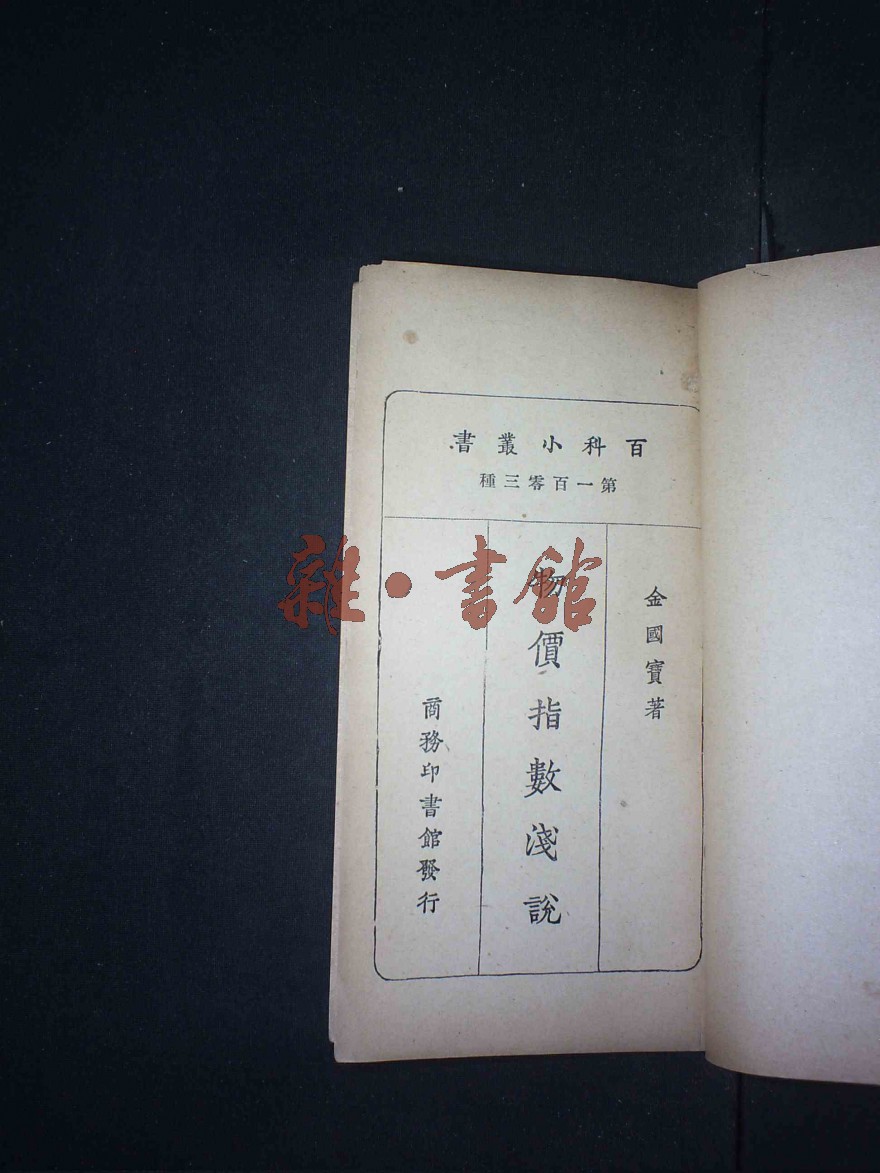 百科小叢書
第一百零三種
金國寶著
物價指數淺說
商務印書館發行
雜·書館